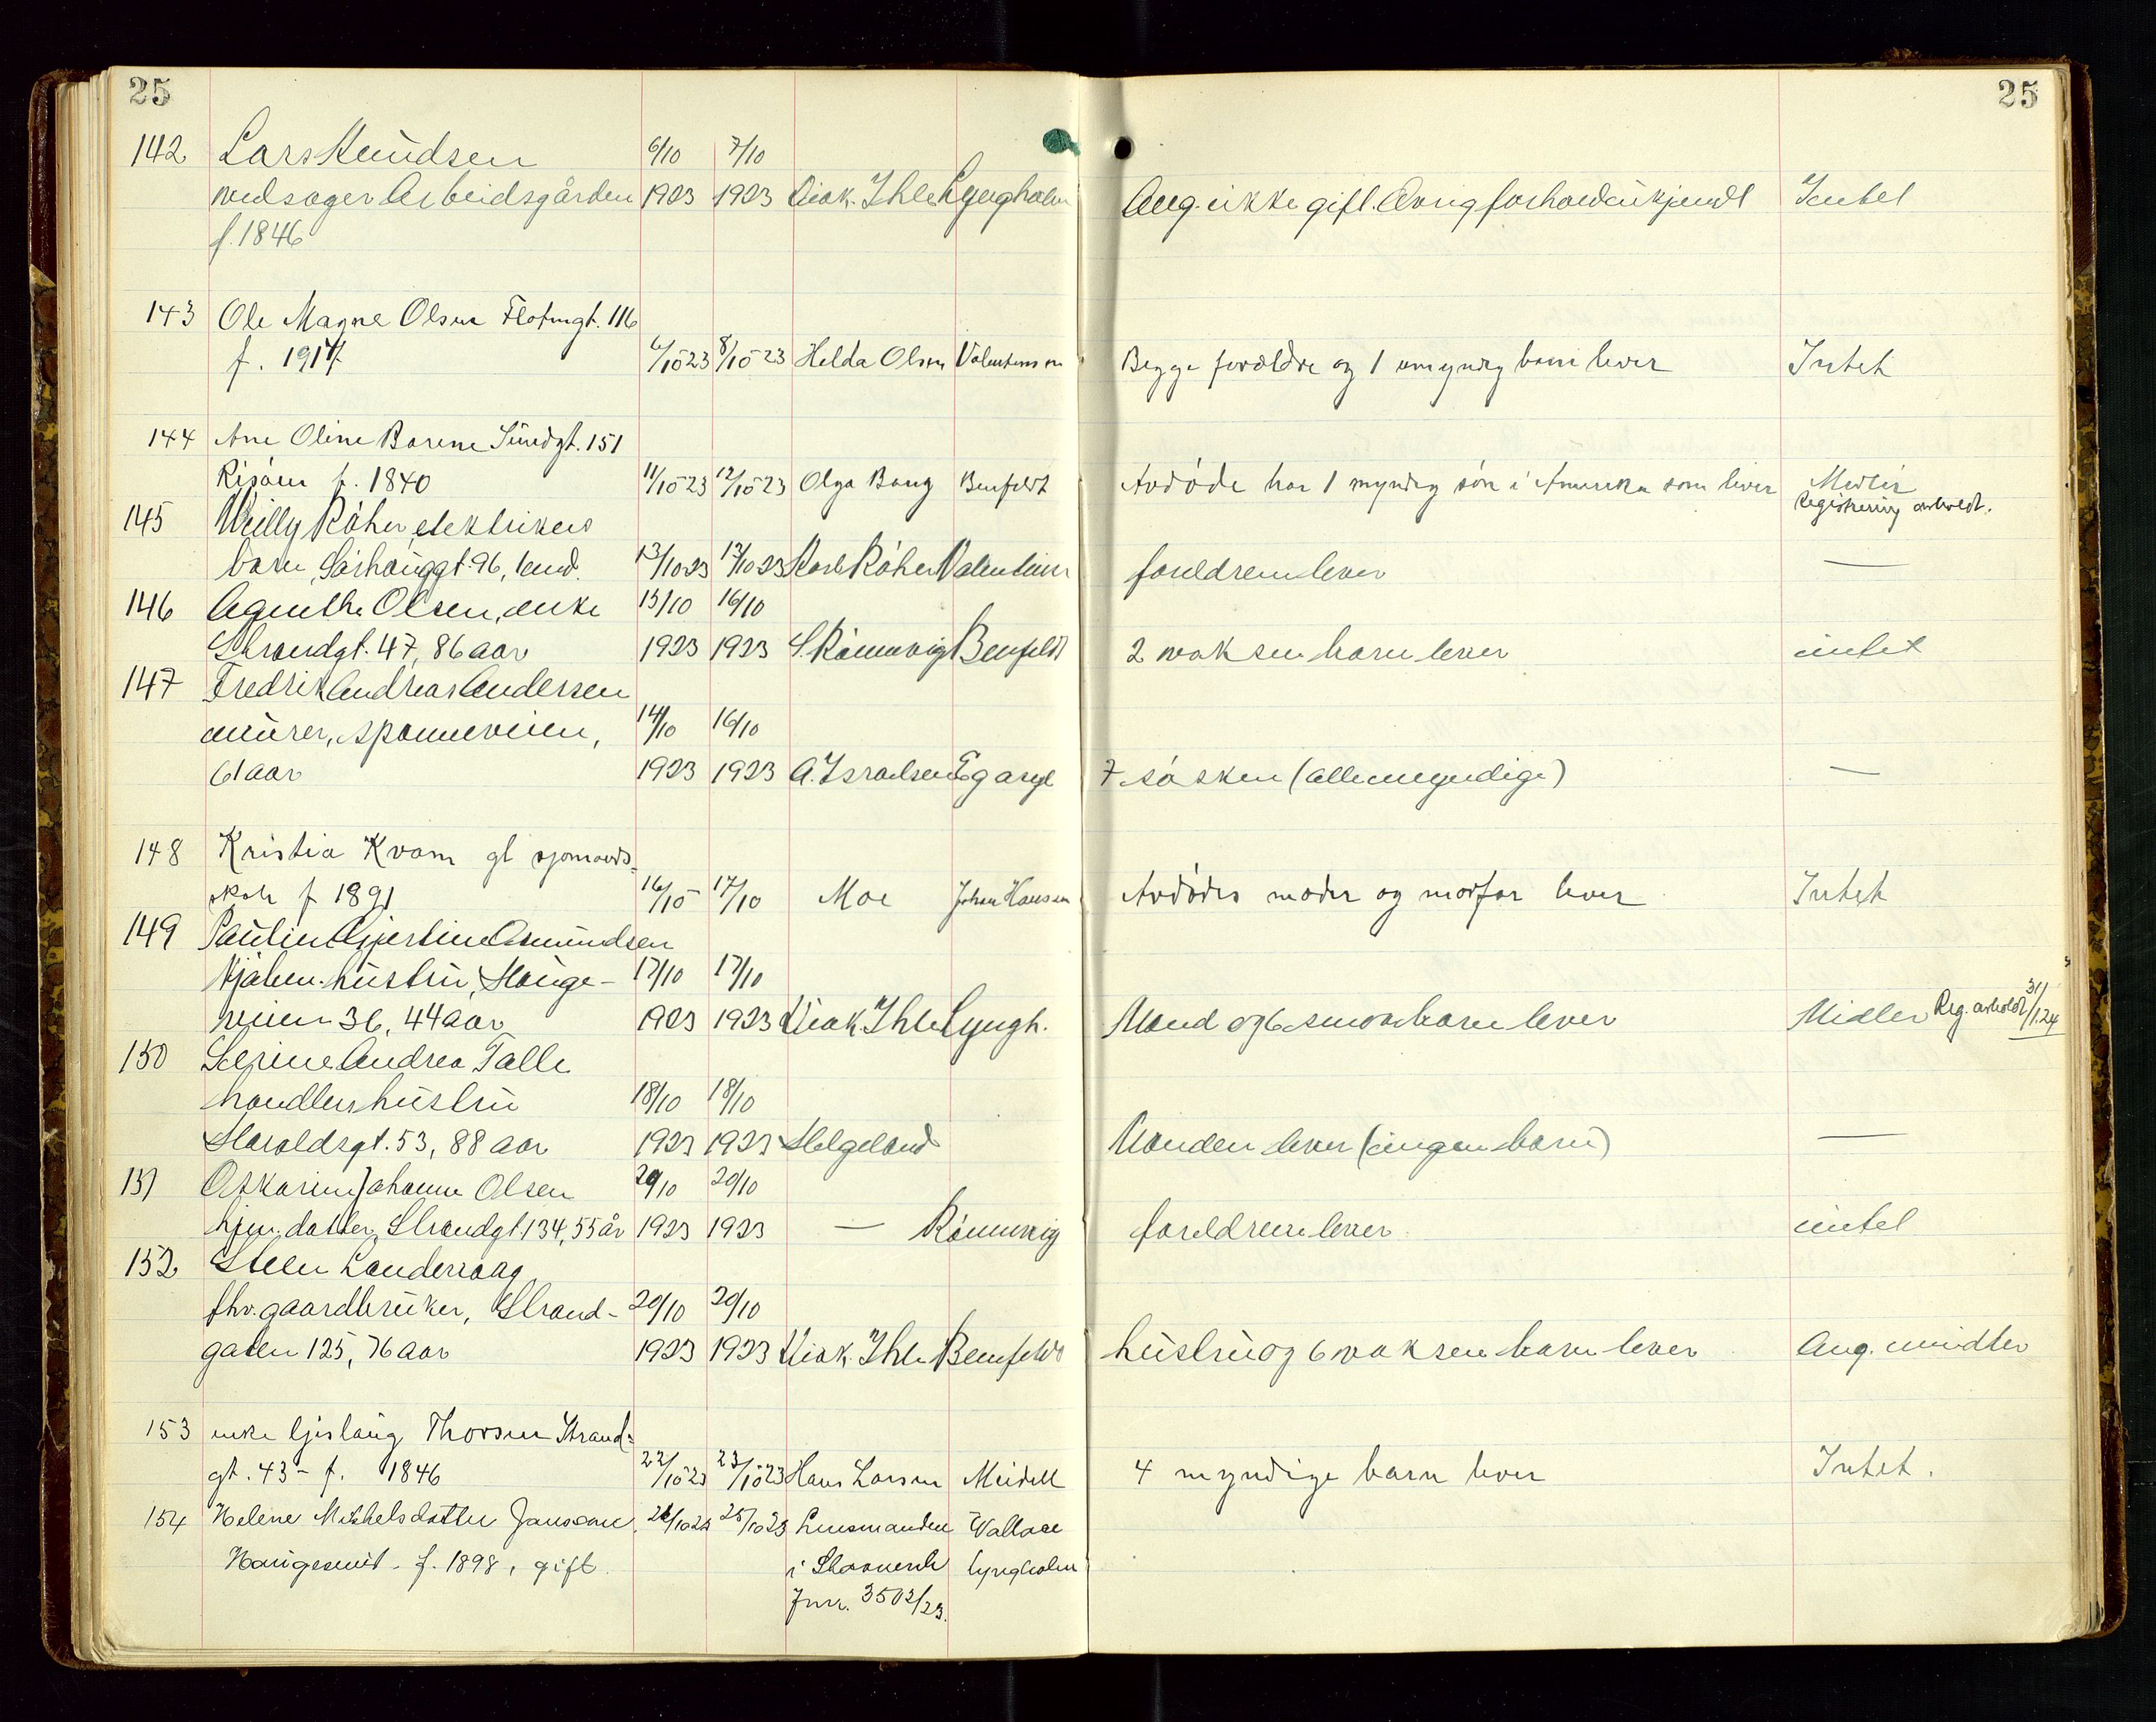 25 25
142 Lars Knudsen 6/10 7/10
vedsager Arbeidsgården 1923 1923 Diak. Ihle Lyngholm Ang. ikke gift. Øvrig forhold ukjendt Intet
f. 1846
143 Ole Magne Olsen Flotmgt. 116
f. 1917 6/10 23 8/10 23 Helda Olsen Valentinsen Begge forældre og 1 umyndig barn lever Intet
144 Ane Oline Barene Sundgt. 151
Risøen f. 1840 11/10 23 12/10 23 Olga Bang Benfeldt Avdøde har 1 myndig søn i Amerika som lever Midler
Registrering avholdt.
145 Willy Røher, elektrikers
barn, Sørhauggt. 96, 1 md. 13/10 23 13/10 23 Karl Røher Valentinsen foreldrene lever —
146 Agnethe Olsen, enke 15/10 16/10
Strandgt. 47, 86 aar 1923 1923 S. Rønnevig Benfeldt 2 voksne barn lever intet
147 Fredrik Andreas Andersen
murer, Spanneveien, 14/10 16/10
61 aar 1923 1923 A. Israelsen Egange 7 søsken (alle myndige) —
148 Kristia Kvam gl sjømands-
skole f 1891 16/10 17/10 Moe Johan Hansen Avdødes moder og morfar lever Intet
149 Pauline Gjertine Amundsen
sjøhem. hustru, Hauge- 17/10 17/10
veien 36, 44 aar 1923 1923 Diak. Ihle Lyngh. Mand og 6 smaa barn lever Midler Reg. avholdt 31/1.24
150 Serine Andrea Talle
handlers hustru 18/10 18/10
Haraldsgt. 53, 88 aar 1923 1923 Helgeland Manden lever (ingen barn) —
151 Oskarine Johanne Olsen 20/10 20/10
hjem. datter, Strandgt 134, 55 år 1923 1923 — Rønnevig foreldrene lever intet
152 Steen Landersvaag
fhv. gaardbruker, Strand- 20/10 20/10
gaten 125, 76 aar 1923 1923 Diak. Ihle Benfeldt hustru og 6 voksne barn lever Ang. midler
153 enke Gjislaug Thorsen Strand-
gt. 43 - f. 1846 22/10 23 23/10 23 Hans Larsen Meidell 4 myndige barn lever Intet.
154 Helene Mikkelsdatter Jansson, 24/10 23 25/10 23 Lensmanden Wallace
Haugesund. f. 1898, gift. i Skaanevik Lyngholm
Jnr. 3502/23.